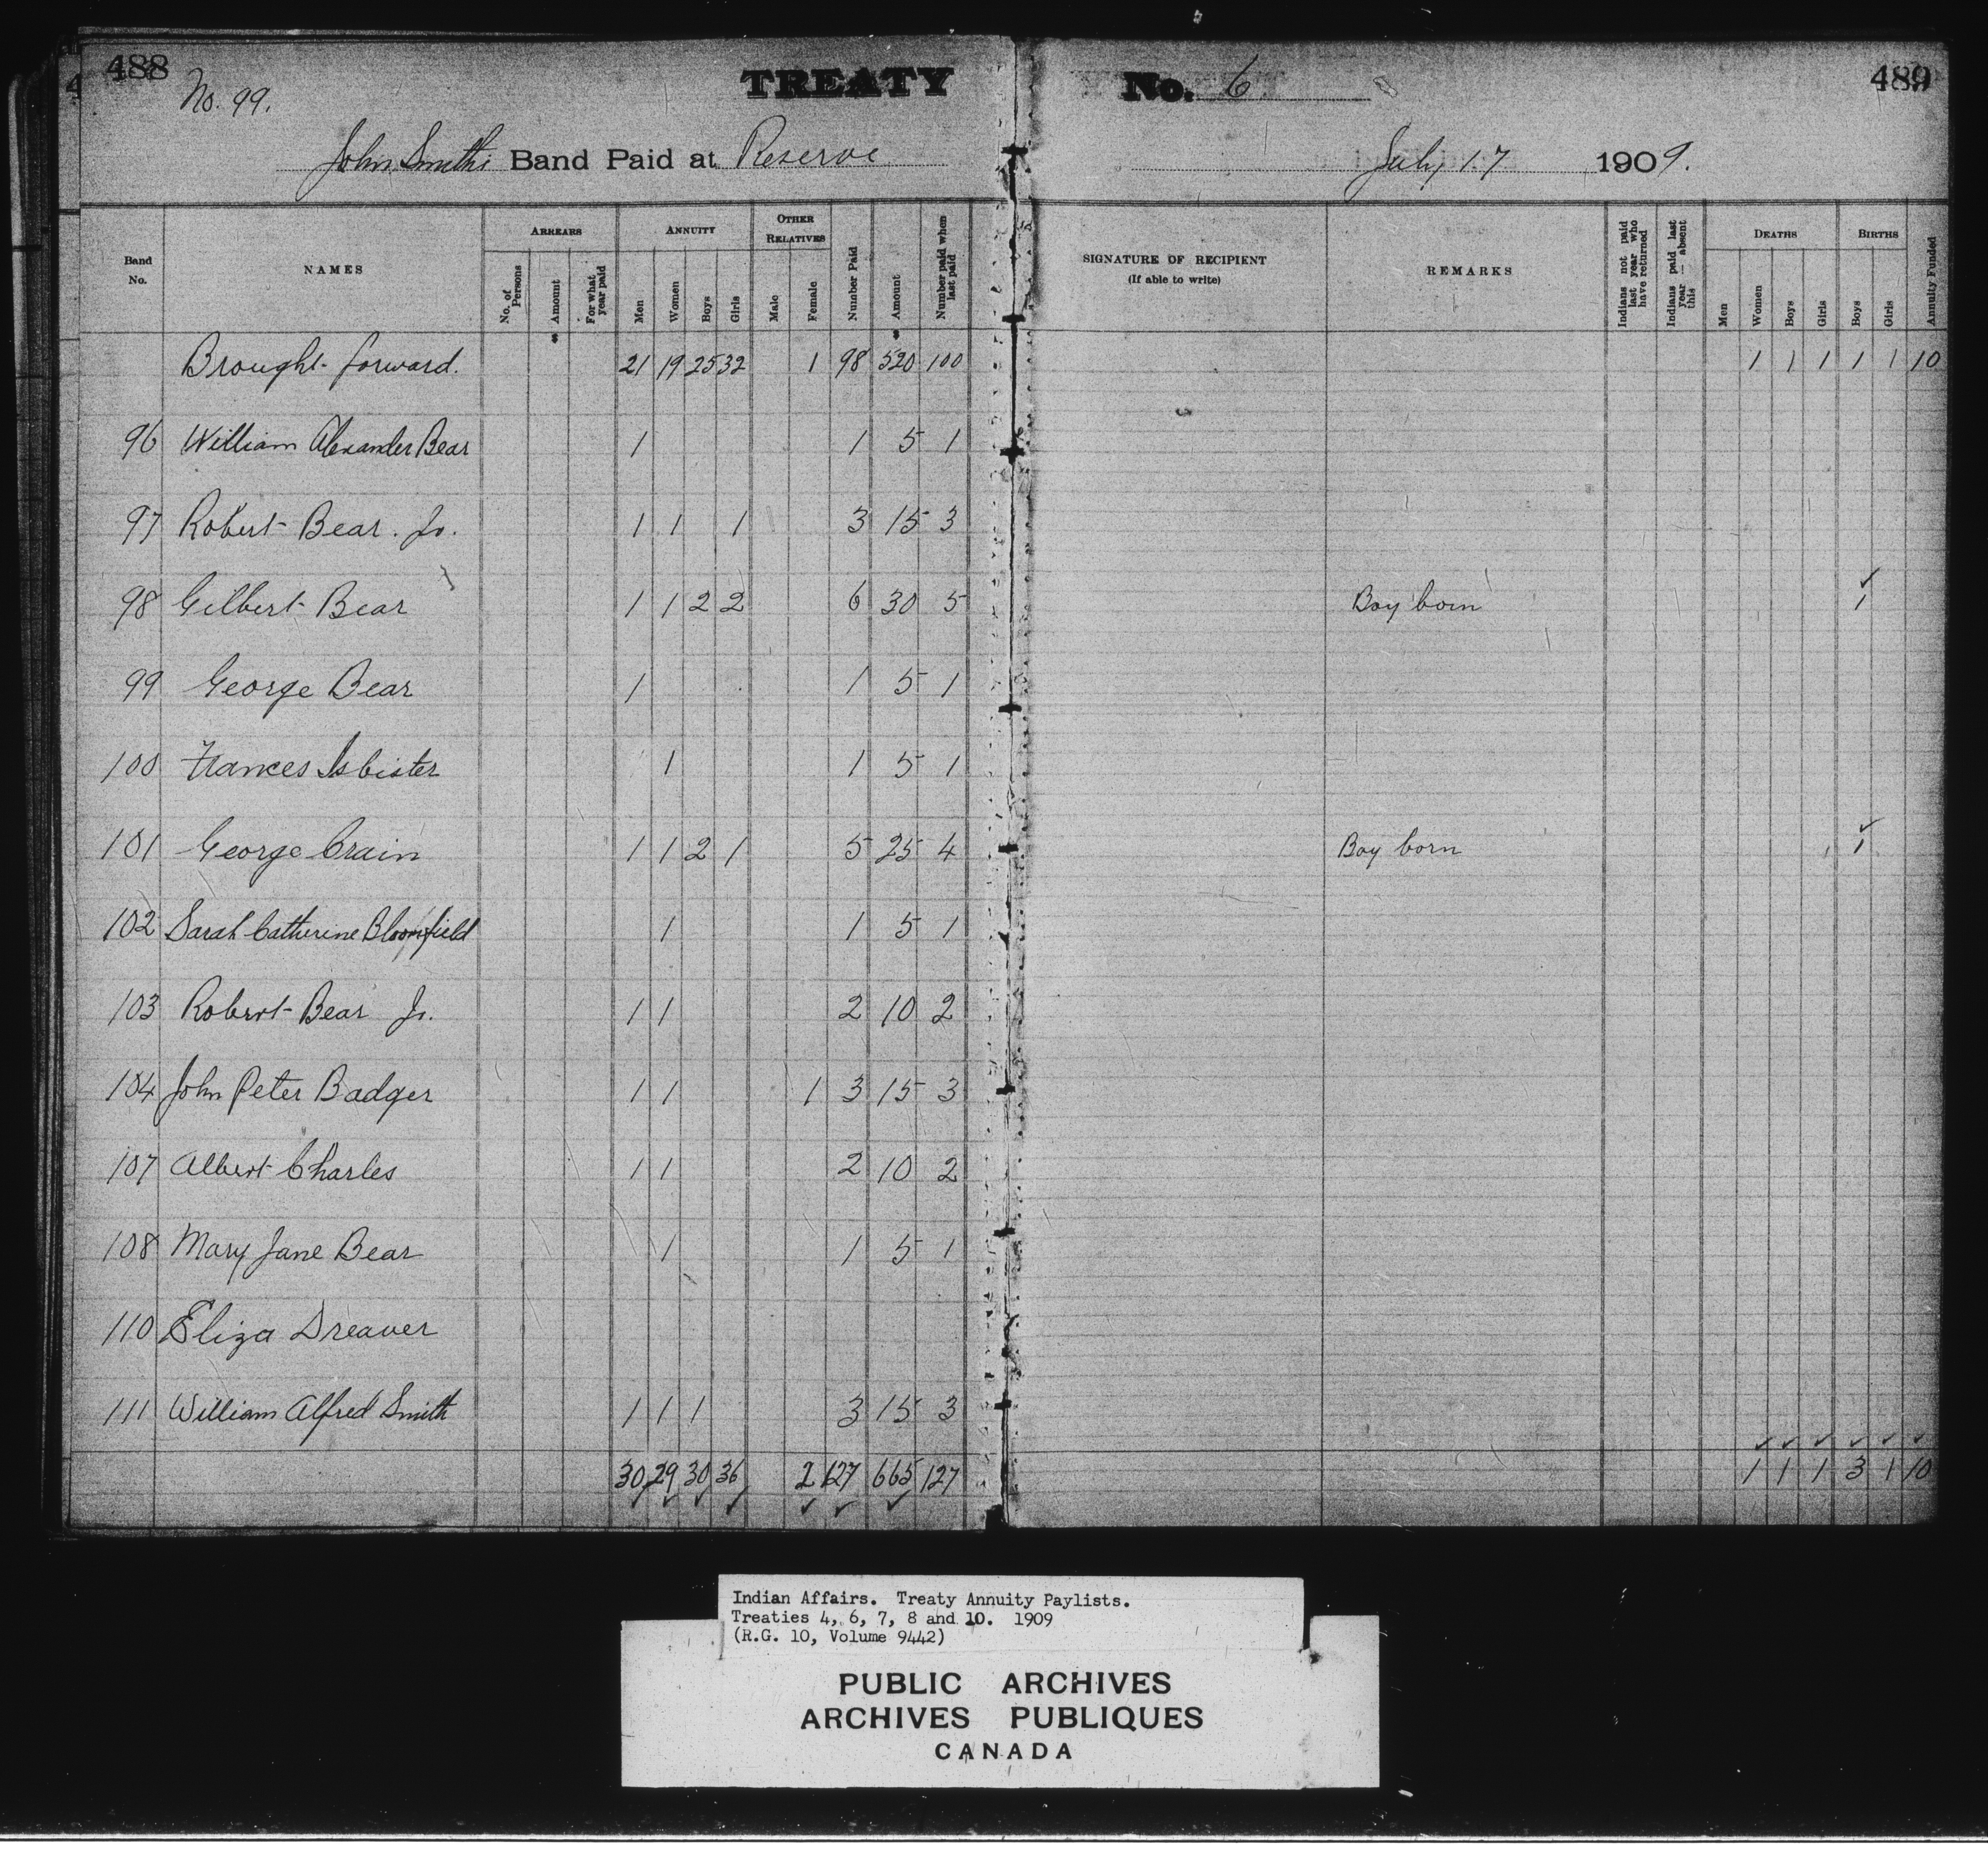 488
No. 99.
TREATY No. 6
489
John Smith's Band Paid at Reserve July 17 1909.
Band No.
NAMES
ARREARS
No. of Persons
Amount
For what year paid
ANNUITY
Men
Women
Boys
Girls
OTHER RELATIVES
Male
Female
Number Paid
Amount
Number paid when last paid
SIGNATURE OF RECIPIENT
(If able to write)
REMARKS
Indians not paid last year who have returned
Indians paid last year — absent this
DEATHS
Men
Women
Boys
Girls
BIRTHS
Boys
Girls
Annuity Funded
Brought forward. 21 19 25 32 1 98 520 100 1 1 1 1 1 10
96 William Alexander Bear 1 1 5 1
97 Robert Bear. Jr. 1 1 1 3 15 3
98 Gilbert Bear 1 1 2 2 6 30 5 Boy born 1
99 George Bear 1 1 5 1
100 Frances Isbister 1 1 5 1
101 George Crain 1 1 2 1 5 25 4 Boy born 1
102 Sarah Catherine Bloomfield 1 1 5 1
103 Robert Bear Jr. 1 1 2 10 2
104 John Peter Badger 1 1 1 3 15 3
107 Albert Charles 1 1 2 10 2
108 Mary Jane Bear 1 1 5 1
110 Eliza Dreaver
111 William Alfred Smith 1 1 1 3 15 3
30 29 30 36 2 127 665 127 1 1 1 3 1 10
Indian Affairs. Treaty Annuity Paylists.
Treaties 4, 6, 7, 8 and 10. 1909
(R.G. 10, Volume 9442)
PUBLIC ARCHIVES
ARCHIVES PUBLIQUES
CANADA